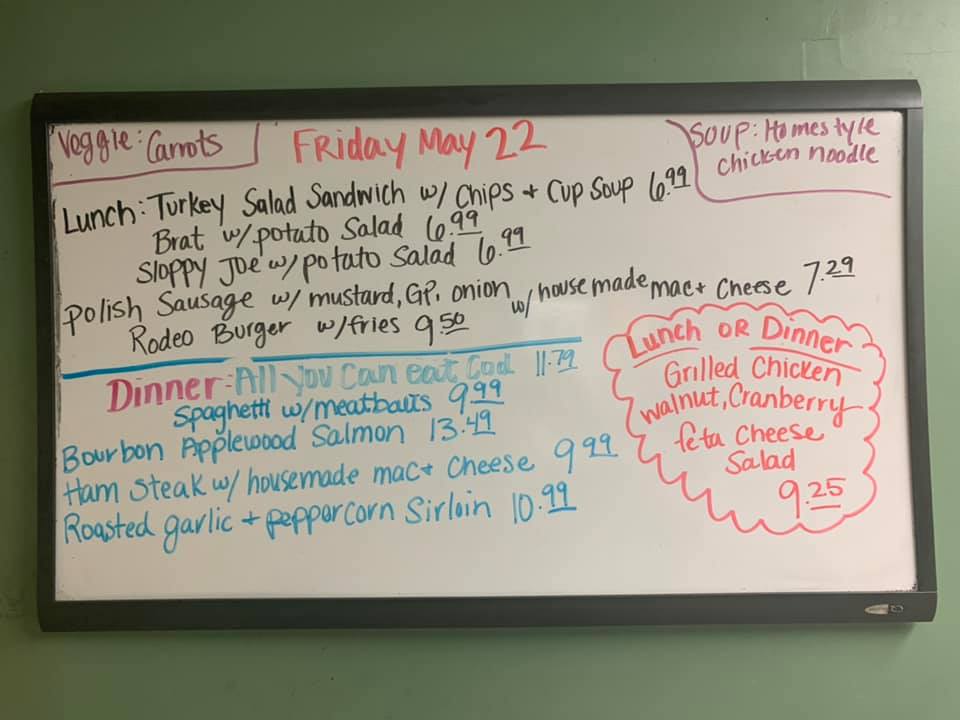 Veggie: Carrots
Friday May 22
Soup: Homestyle
chicken noodle
Lunch: Turkey Salad Sandwich w/ Chips + Cup Soup 6.99
Brat w/potato Salad 6.99
Sloppy Joe w/potato Salad 6.99
Polish Sausage w/ mustard, GP. onion w/house made mac + Cheese 7.29
Rodeo Burger w/fries 9.50
Dinner: All You Can eat Cod 11.79
Spaghetti w/meatballs 9.99
Bourbon Applewood Salmon 13.49
Ham Steak w/ housemade mac + Cheese 9.99
Roasted garlic + pepparcorn Sirloin 10.99
Lunch OR Dinner
Grilled Chicken
walnut, Cranberry
feta Cheese
Salad
9.25